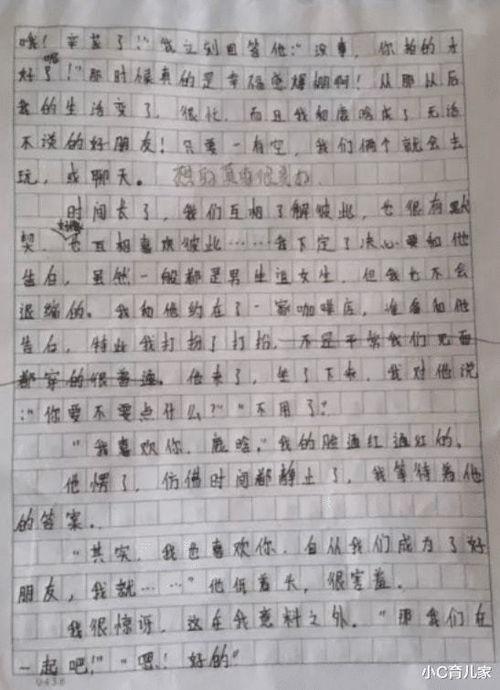 哦！辛苦了！"我立刻回答他："没事，你拍的太
好了！"那时候真的是幸福感爆棚啊！从那以后
我的生活变了，很忙，而且我和鹿晗成了无话
不谈的好朋友！只要一有空，我们俩个就会去
玩，或聊天。
时间长了，我们互相了解彼此，也很有默
契，也互相喜欢彼此……我下定了决心要和他
告白，虽然一般都是男生追女生，但我也不会
退缩的。我和他约在了一家咖啡店，准备和他
告白，特此我打扮了打扮，不是平常我们见面
都穿的很普通。他来了，坐了下来，我对他说
："你要不要点什么？""不用了。"
"我喜欢你，鹿晗。"我的脸通红通红的。
他愣了，仿佛时间都静止了，我等待着他
的答案。
"其实，我也喜欢你，自从我们成为了好
朋友，我就……"他低着头，很害羞。
我很惊讶，这在我意料之外。"那我们在
一起吧！""嗯！好的"
小C育儿家